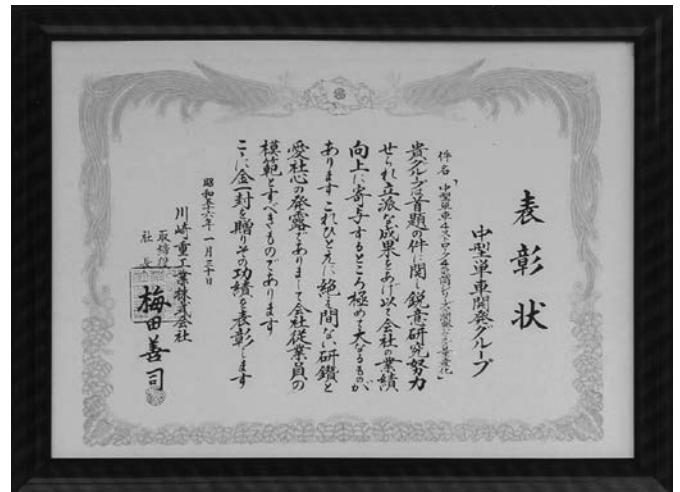 表彰状
中型単車開発グループ
件名「中型単車4ストローク4気筒シリーズの開発および量産化」
貴グループは首題の件に関し鋭意研究努力
せられ立派な成果をあげ以て会社の業績
向上に寄与するところ極めて大なるものが
あります これひとえに絶え間ない研鑽と
愛社心の発露でありまして会社従業員の
模範とすべきものであります
ここに金一封を贈りその功績を表彰します
昭和五十六年一月三十日
川崎重工業株式会社
取締役
社長
梅田善司